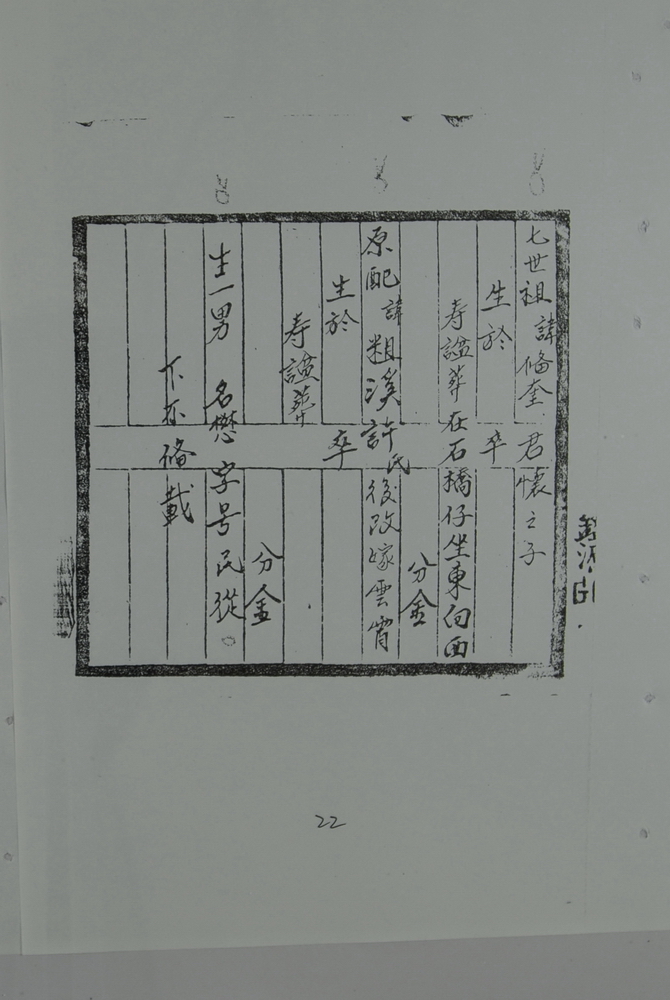 七世祖 諱脩奎 君懷之子
生於 卒
寿謚葬在石橋仔坐東向西
分金
原配諱粗溪許氏後改嫁雲霄
生於 卒
寿謚葬
分金
生一男 名懋 字号民從。
下亦脩載
22